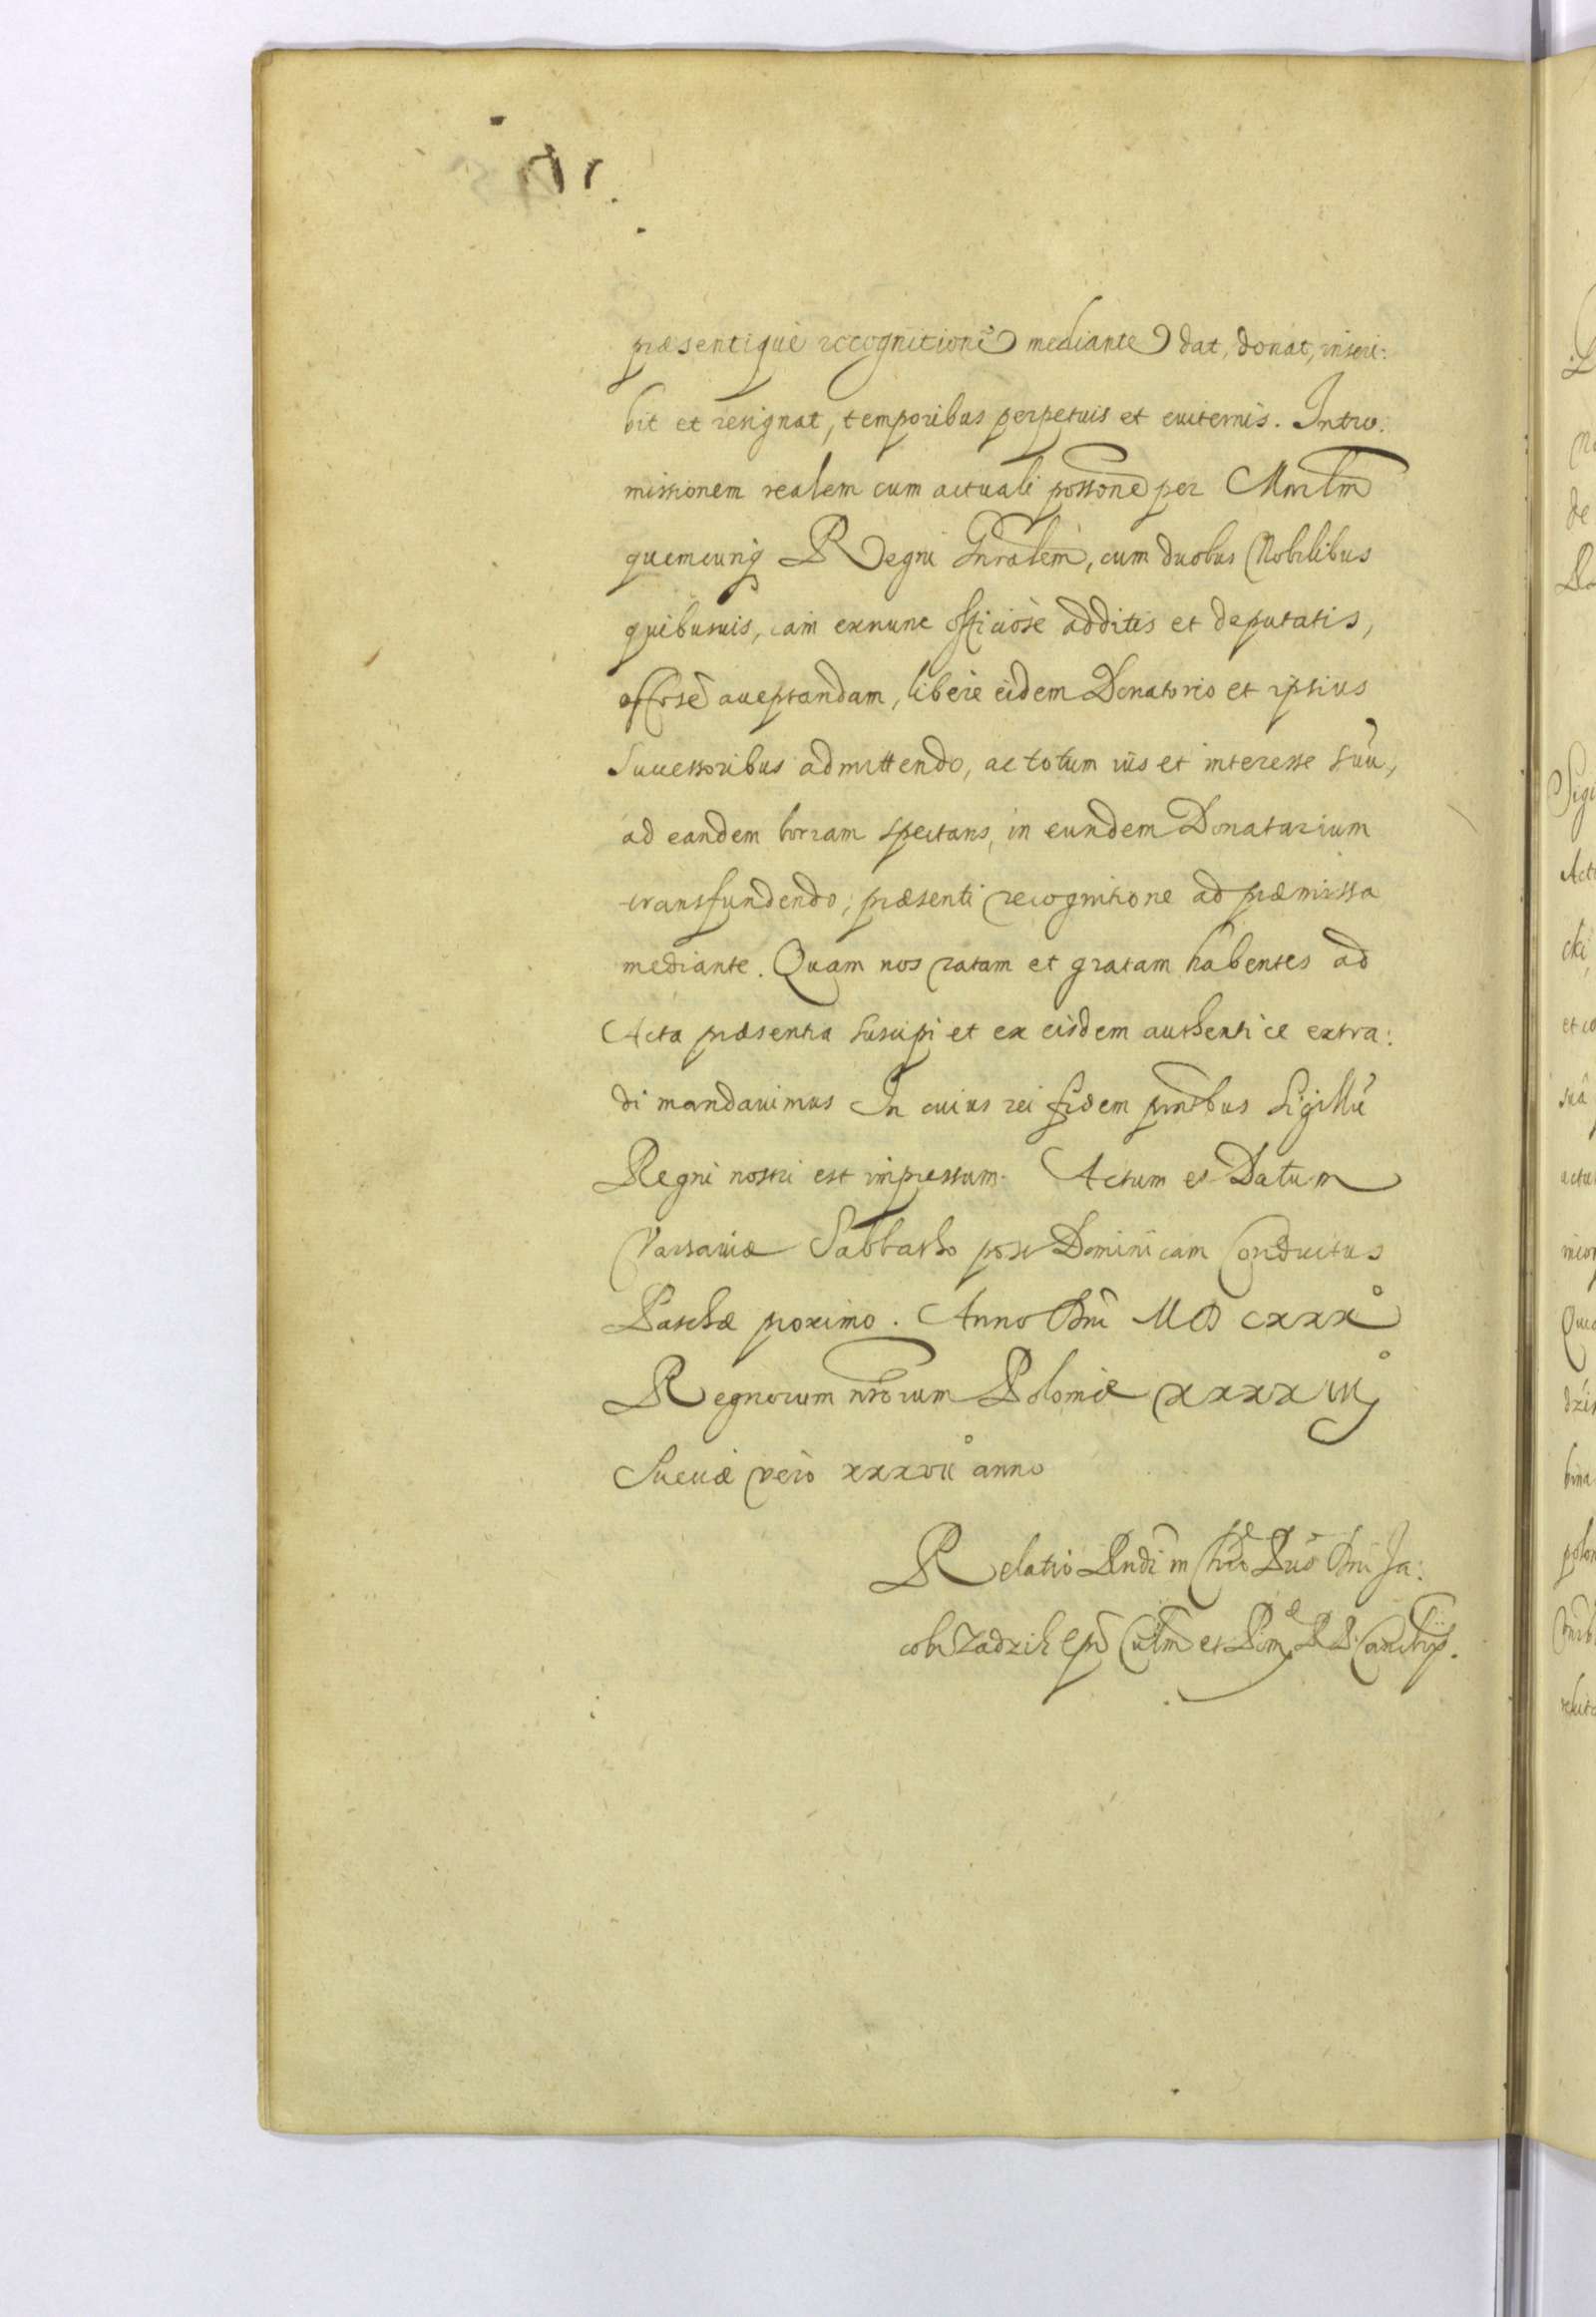 præsentique recognitione mediante dat, donat, inscri:
bit et resignat, temporibus perpetuis et euiternis. Intro:
missionem realem cum actuali possone per Mnrlm
quemcunq Regni Gnralem, cum duobus Nobilibus
quibusuis, iam exnunc officiose additis et deputatis,
offose acceptandam, libere eidem Donatorio et ipsius
Successoribus admittendo, ac totum ius et interesse suu,
ad eandem spectans, in eundem Donatarium
transfundendo, præsenti recognitione ad præmissa
mediante. Quam nos ratam et gratam habentes ad
Acta præsentia suscipi et ex eisdem authentice extra:
di mandauimus In cuius rei fidem pntibus Sigillu
Regni nostri est impressum. Actum et Datum
Varsauiæ Sabbatho post Dominicam Conductus
Paschæ proximo. Anno Dni MDCXXX°
Regnorum nrorum Poloniæ XXXXIII°
Sueciæ vero xxxvii° anno
Relatio Rndi in Chro Pris Dni Ja:
cobi Zadzik Epi Culm et Pom R P Cancrij.